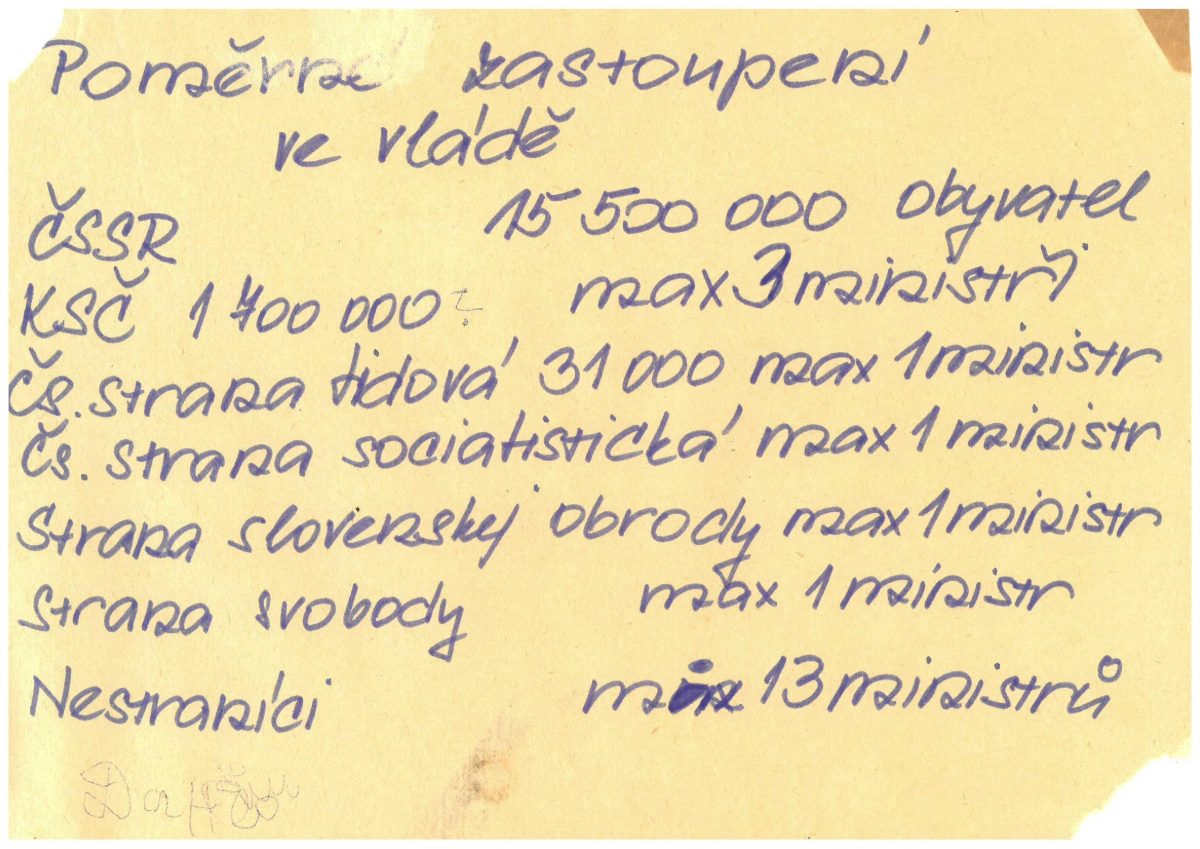 Poměrné zastoupení
ve vládě
ČSSR 15 500 000 obyvatel
KSČ 1 700 000 max 3 ministři
Čs. strana lidová 31 000 max 1 ministr
Čs. strana socialistická max 1 ministr
Strana slovenskej obrody max 1 ministr
Strana svobody max 1 ministr
Nestraníci min 13 ministrů